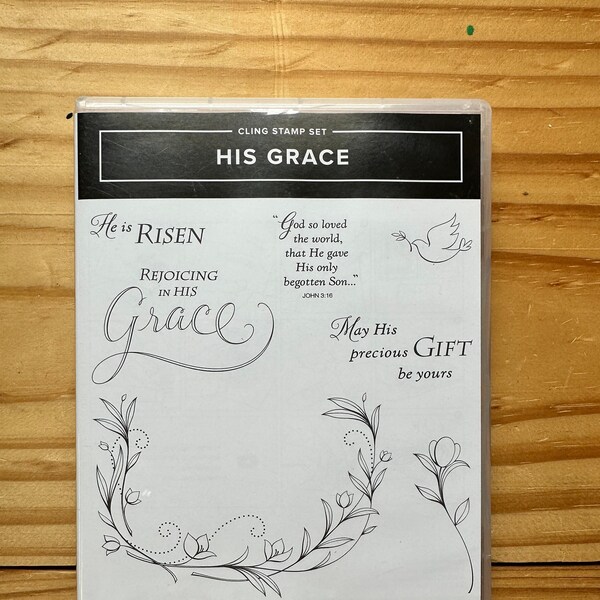 CLING STAMP SET
HIS GRACE
He is RISEN
REJOICING
IN HIS
Grace
"God so loved
the world,
that He gave
His only
begotten Son..."
JOHN 3:16
May His
precious GIFT
be yours